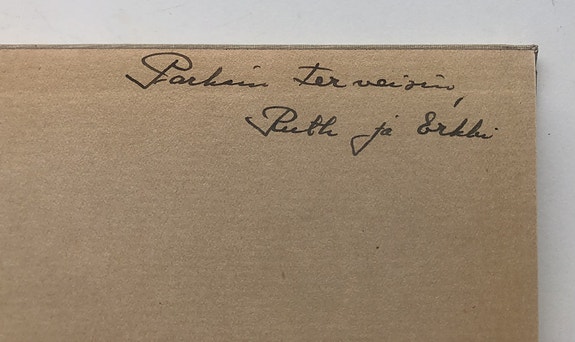 Parhain terveisin,
Ruth ja Erkki